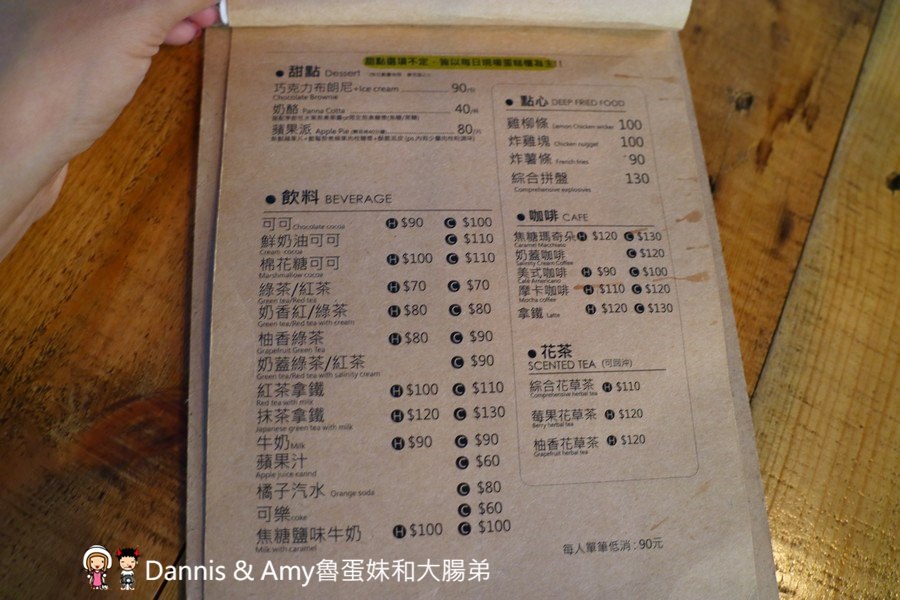 甜點選項不定 皆以每日現場蛋糕櫃為主!!
● 甜點 Dessert
巧克力布朗尼+Ice cream 90/份
Chocolate Brownie
奶酪 Panna Cotta 40/杯
蘋果派 Apple Pie 80/片
● 飲料 BEVERAGE
可可 Chocolate cocoa H $90 C $100
鮮奶油可可 C $110
Cream cocoa
棉花糖可可 H $100 C $110
Marshmallow cocoa
綠茶/紅茶 H $70 C $70
Green tea/Red tea
奶香紅/綠茶 H $80 C $80
Green tea/Red tea with cream
柚香綠茶 H $80 C $90
Grapefruit Green Tea
奶蓋綠茶/紅茶 C $90
Green tea/Red tea with salinity cream
紅茶拿鐵 H $100 C $110
Red tea with milk
抹茶拿鐵 H $120 C $130
Japanese green tea with milk
牛奶 Milk H $90 C $90
蘋果汁 C $60
Apple juice cannd
橘子汽水 Orange soda C $80
可樂 coke C $60
焦糖鹽味牛奶 H $100 C $100
Milk with caramel
● 點心 DEEP FRIED FOOD
雞柳條 Lemon Chicken wicker 100
炸雞塊 Chicken nugget 100
炸薯條 French fries 90
綜合拼盤 130
Comprehensive explosives
● 咖啡 CAFE
焦糖瑪奇朵 H $120 C $130
Caramel Macchiato
奶蓋咖啡 C $120
Salinity Cream Coffee
美式咖啡 H $90 C $100
Café Americano
摩卡咖啡 H $110 C $120
Mocha coffee
拿鐵 Latte H $120 C $130
● 花茶
SCENTED TEA (可回沖)
綜合花草茶 H $110
Comprehensive herbal tea
莓果花草茶 H $120
Berry herbal tea
柚香花草茶 H $120
Grapefruit herbal tea
每人單筆低消：90元
Dannis & Amy魯蛋妹和大腸弟